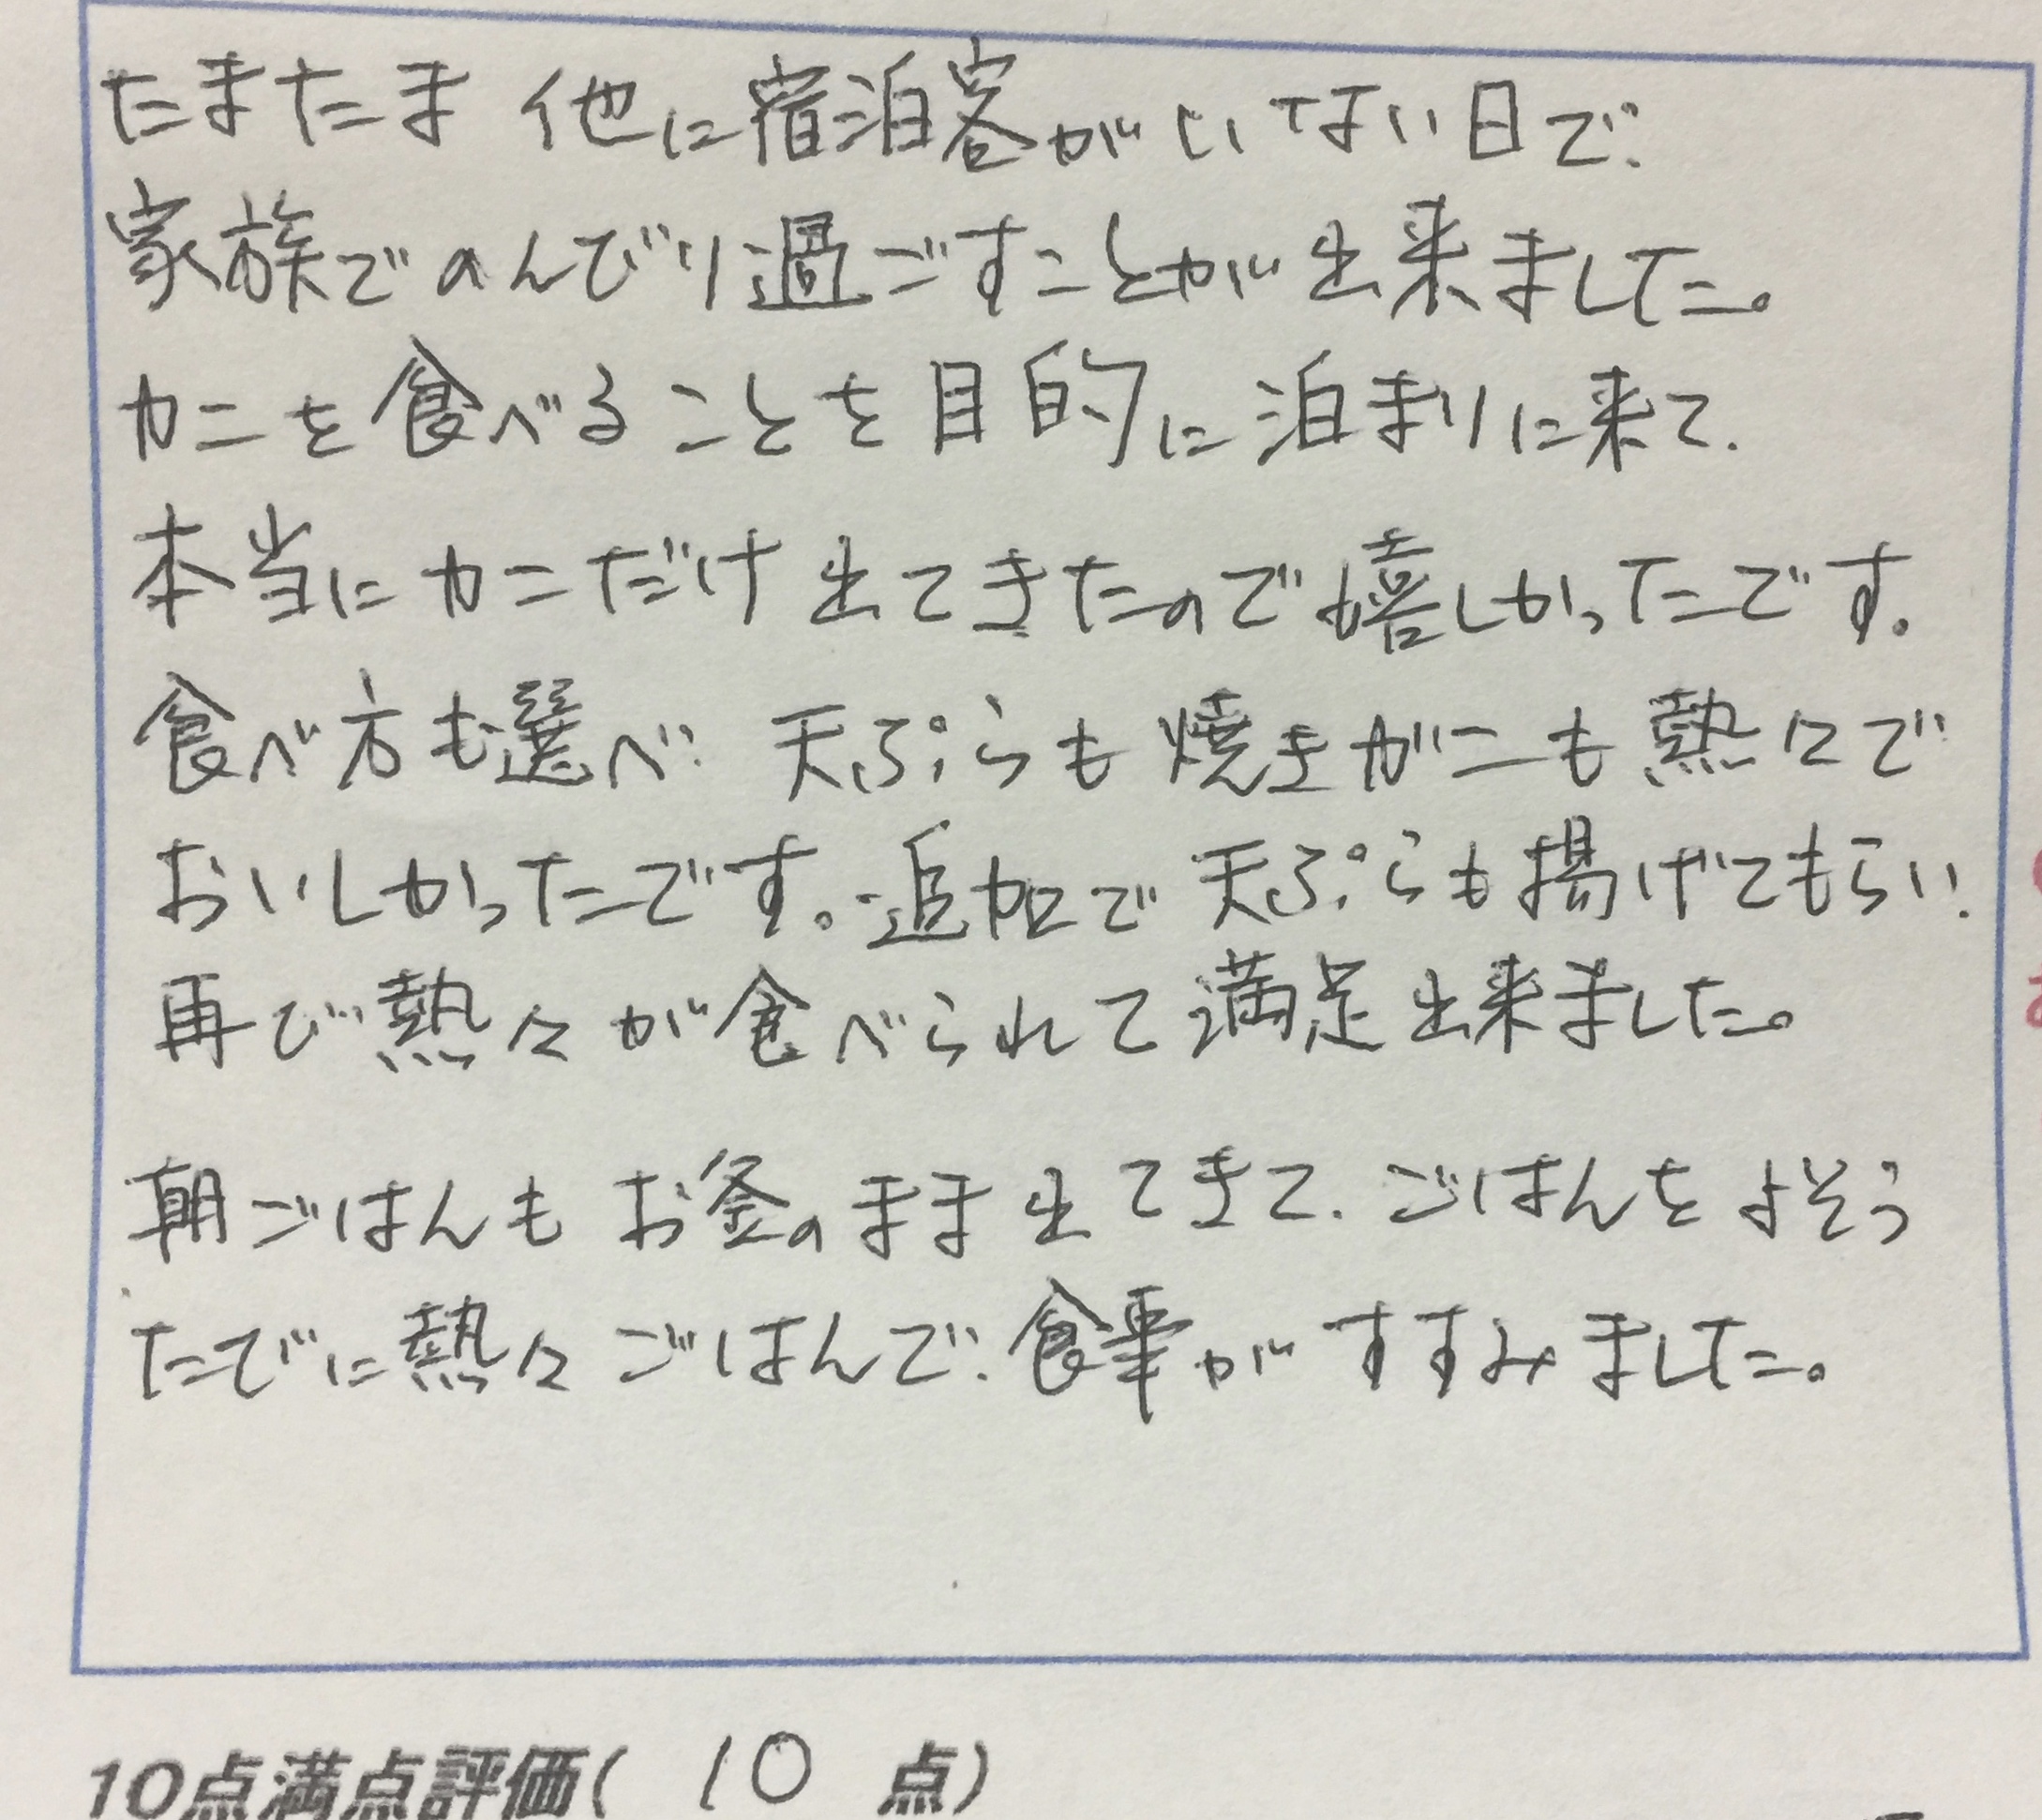 たまたま 他に宿泊客がいない日で、
家族でのんびり過ごすことが出来ました。
カニを食べることを目的に泊まりに来て、
本当にカニだけ出てきたので嬉しかったです。
食べ方も選べ、天ぷらも焼きガニも熱々で
おいしかったです。追加で天ぷらも揚げてもらい、
再び熱々が食べられて満足出来ました。
朝ごはんもお釜のまま出てきて、ごはんをよそう
たびに熱々ごはんで、食事がすすみました。
10点満点評価( 10 点)